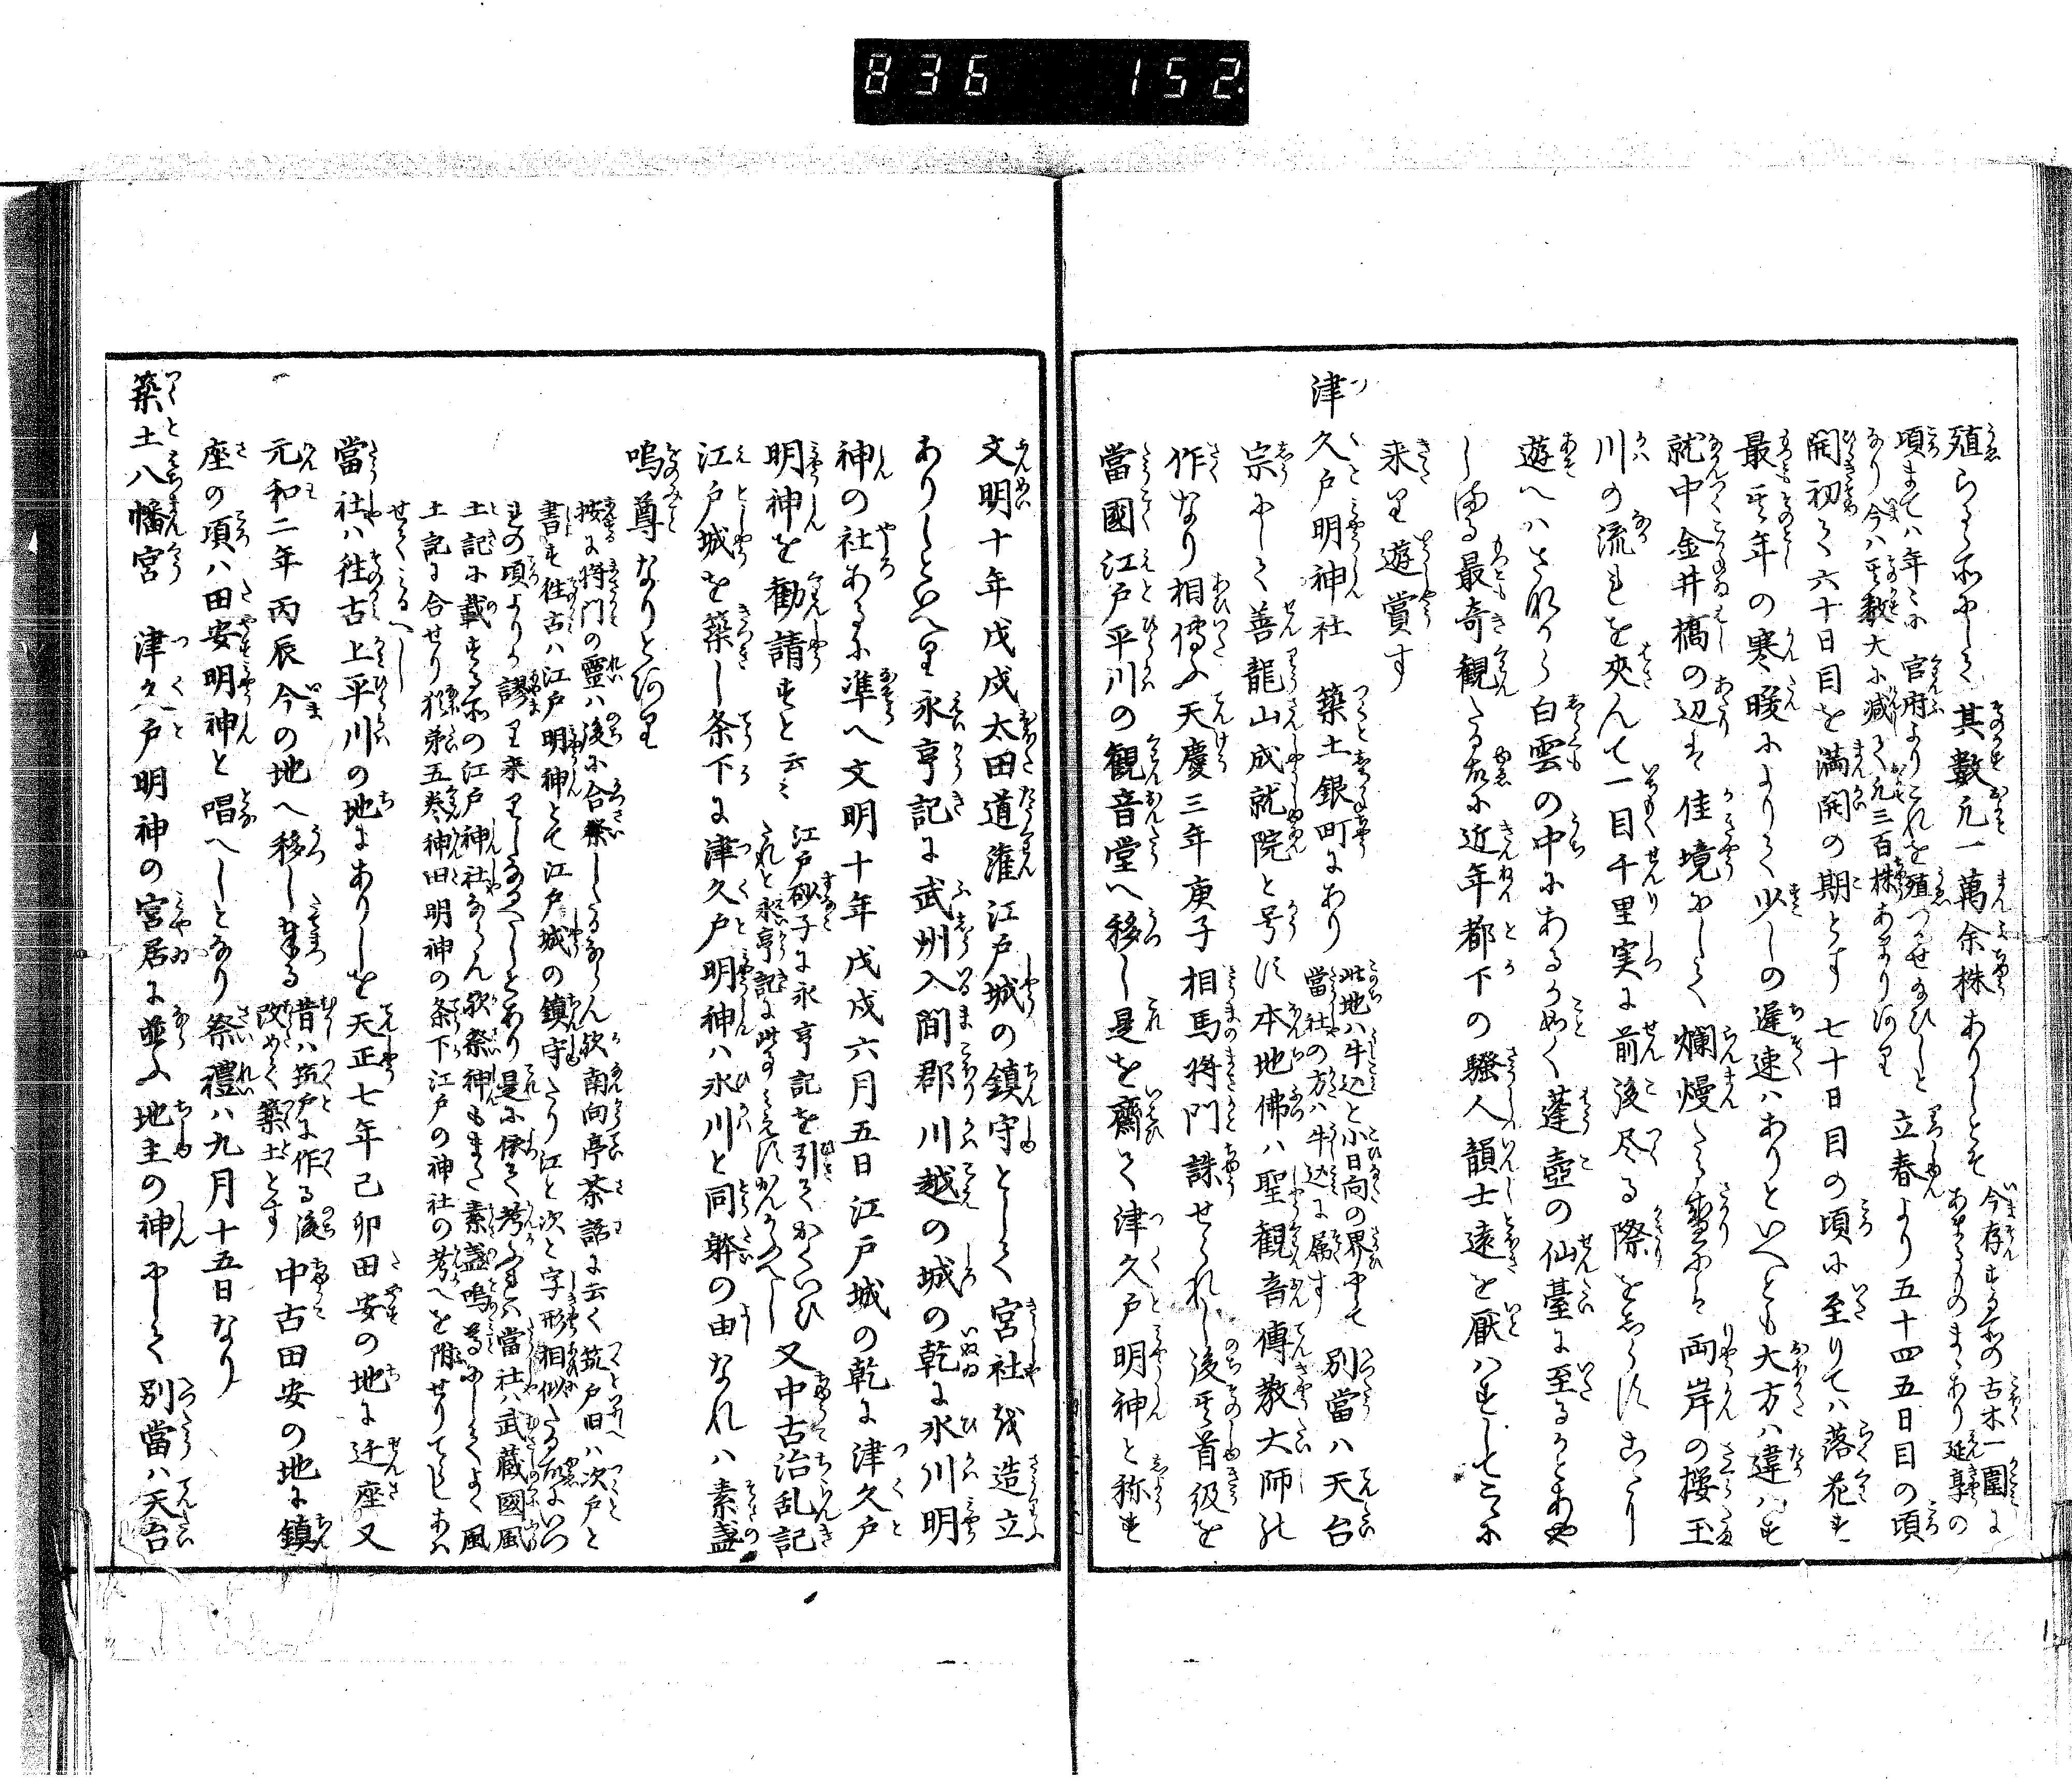 836 152.
殖らるゝ所にして其數凡一萬余株ありしとそ 今存する所の古木一園に
あまりのまゝあり延享の
頃まては年々に官府よりこれを殖つがせ給ひしと
なり今は其数大に減して凡三百株あまり有り 立春より五十四五日目の頃
開初て六十日目を満開の期とす七十日目の頃に至りては落花す
最其年の寒暖によりて少しの遅速はありといへとも大方は違はす
就中金井橋の辺は佳境にして爛熳たる盛には両岸の桜玉
川の流を夾んて一目千里実に前後尽る際をしらすこゝに
遊へはさなから白雲の中にあるか如く蓬壺の仙臺に至るかとあや
しまる最奇観たる故に近年都下の騒人韻士遠を厭はすしてこゝに
来り遊賞す
津久戸明神社 築土銀町にあり 此地ハ牛込と小日向の界にて
當社の方ハ牛込に属す 別當ハ天台
宗にして善龍山成就院と号す本地佛ハ聖観音傳教大師の
作なり相傳ふ天慶三年庚子相馬将門誅せられし後其首級を
當國江戸平川の観音堂へ移し是を齋て津久戸明神と称す
文明十年戊戌太田道灌江戸城の鎮守として宮社を造立
ありしといへり永享記に武州入間郡川越の城の乾に氷川明
神の社あるに準へ文明十年戊戌六月五日江戸城の乾に津久戸
明神を勧請すと云々 江戸砂子に永亨記を引てかくいひ
たれと永亨記に此事みえすかんかふへし 又中古治乱記
江戸城を築し条下に津久戸明神ハ氷川と同躰の由なれハ素盞
嗚尊なりと有り
按に将門の靈ハ後に合祭したるならん欤南向亭茶話に云く筑戸旧ハ次戸と
書す往古ハ江戸明神とて江戸城の鎮守たり江と次と字形相似たる故にいつ
れの頃よりか謬り来りしなるへしとあり是に依て考ふれハ當社ハ武蔵國風
土記に載する所の江戸神社ならん欤祭神もまた素盞嗚尊にしてよく風
土記に合せり猶第五巻神田明神の条下江戸の神社の考へを附せりてらしあハ
せてみるへし
當社ハ往古上平川の地にありしを天正七年己卯田安の地に迁座又
元和二年丙辰今の地へ移し奉る 昔ハ筑戸に作る後
改めて築土とす 中古田安の地に鎮
座の頃ハ田安明神と唱へしとなり祭禮ハ九月十五日なり
築土八幡宮 津久戸明神の宮居に並ふ地主の神にして別當ハ天台